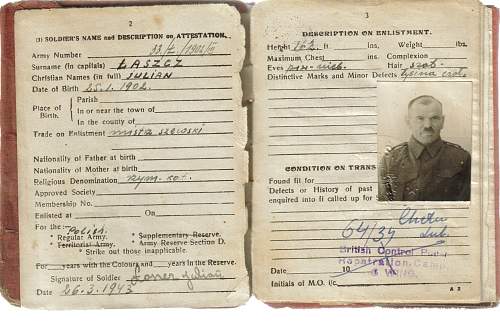 2
(1) SOLDIER'S NAME and DESCRIPTION on ATTESTATION.
Army Number
Surname (in capitals) ŁASZCZ
Christian Names (in full) JULIAN
Date of Birth 25.1.1902.
Place of Birth
Parish
In or near the town of
In the county of
Trade on Enlistment
Nationality of Father at birth
Nationality of Mother at birth
Religious Denomination rzym. kat.
Approved Society
Membership No.
Enlisted at On
For the:— Polish.
* Regular Army. * Supplementary Reserve.
* Territorial Army. * Army Reserve Section D.
* Strike out those inapplicable.
For years with the Colours and years in the Reserve.
Signature of Soldier Julian
Date 26.3.1943
3
DESCRIPTION ON ENLISTMENT.
Height 162 ft ins. Weight lbs.
Maximum Chest ins. Complexion
Eyes Hair
Distinctive Marks and Minor Defects
CONDITION ON TRANS
Found fit for
Defects or History of past
enquired into if called up for S
64/39
British Control Post
Repatriation Camp
Date 10
Initials of M.O. i/c
A 2